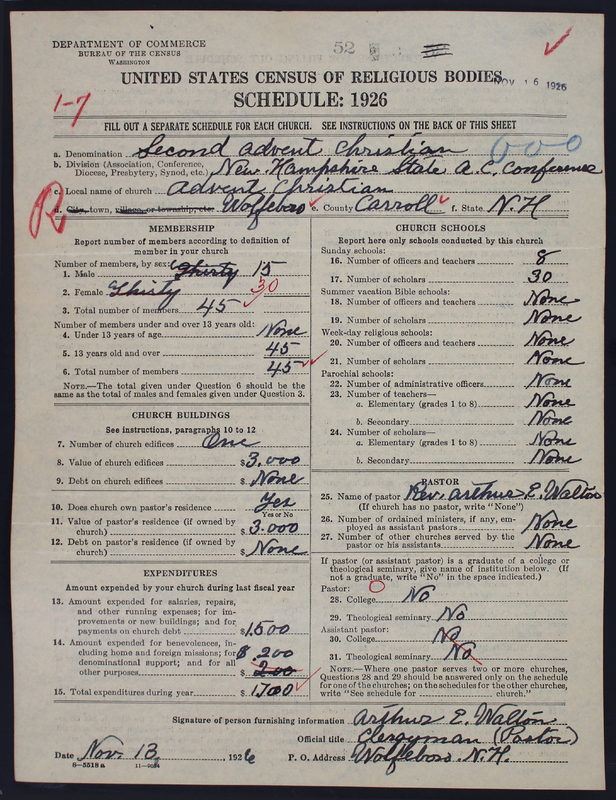 DEPARTMENT OF COMMERCE
BUREAU OF THE CENSUS
WASHINGTON
52
UNITED STATES CENSUS OF RELIGIOUS BODIES
NOV 16 1926
SCHEDULE: 1926
1-7
FILL OUT A SEPARATE SCHEDULE FOR EACH CHURCH. SEE INSTRUCTIONS ON THE BACK OF THIS SHEET
a. Denomination Second Advent Christian 000
b. Division (Association, Conference, Diocese, Presbytery, Synod, etc.) New Hampshire State A. C. Conference
c. Local name of church Advent Christian
R
d. City, town, village, or township, etc. Wolfeboro e. County Carroll f. State N.H
MEMBERSHIP
Report number of members according to definition of
member in your church
Number of members, by sex:
1. Male Thirty 15
2. Female Thirty 30
3. Total number of members 45
Number of members under and over 13 years old:
4. Under 13 years of age None
5. 13 years old and over 45
6. Total number of members 45
NOTE.—The total given under Question 6 should be the
same as the total of males and females given under Question 3.
CHURCH BUILDINGS
See instructions, paragraphs 10 to 12
7. Number of church edifices One
8. Value of church edifices $3.000
9. Debt on church edifices $None
10. Does church own pastor's residence? Yes
Yes or No
11. Value of pastor's residence (if owned by
church) $3.000
12. Debt on pastor's residence (if owned by
church) $None
EXPENDITURES
Amount expended by your church during last fiscal year
13. Amount expended for salaries, repairs,
and other running expenses; for im-
provements or new buildings; and for
payments on church debt $1500
14. Amount expended for benevolences, in-
cluding home and foreign missions; for
denominational support; and for all
other purposes $ 200 $200
15. Total expenditures during year $1700
CHURCH SCHOOLS
Report here only schools conducted by this church
Sunday schools:
16. Number of officers and teachers 8
17. Number of scholars 30
Summer vacation Bible schools:
18. Number of officers and teachers None
19. Number of scholars None
Week-day religious schools:
20. Number of officers and teachers None
21. Number of scholars None
Parochial schools:
22. Number of administrative officers None
23. Number of teachers—
a. Elementary (grades 1 to 8) None
b. Secondary None
24. Number of scholars—
a. Elementary (grades 1 to 8) None
b. Secondary None
PASTOR
25. Name of pastor Rev. Arthur E. Walton
(If church has no pastor, write "None")
26. Number of ordained ministers, if any, em-
ployed as assistant pastors None
27. Number of other churches served by the
pastor or his assistants None
If pastor (or assistant pastor) is a graduate of a college or
theological seminary, give name of institution below. (If
not a graduate, write "No" in the space indicated.)
Pastor:
28. College No
29. Theological seminary No
Assistant pastor:
30. College No
31. Theological seminary No
NOTE.—Where one pastor serves two or more churches,
Questions 28 and 29 should be answered only on the schedule
for one of the churches; on the schedules for the other churches,
write "See schedule for church."
Signature of person furnishing information Arthur E. Walton
Official title Clergyman (Pastor)
Date Nov. 13, 1926 P. O. Address Wolfeboro. N.H.
8—5518a 11—9034